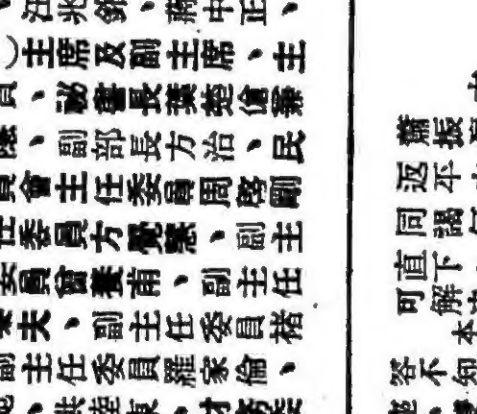 汪兆銘、蔣中正、
）主席及副主席、主
員、秘書長葉楚傖
、副部長方治、民
員會主任委員周啓剛
任委員方覺慧、副主
委員曾養甫、副主任
夫、副主任委員褚
副主任委員羅家倫、
、洪陸東、
蕭振
返平
同謁
可直下
解
本
答不知